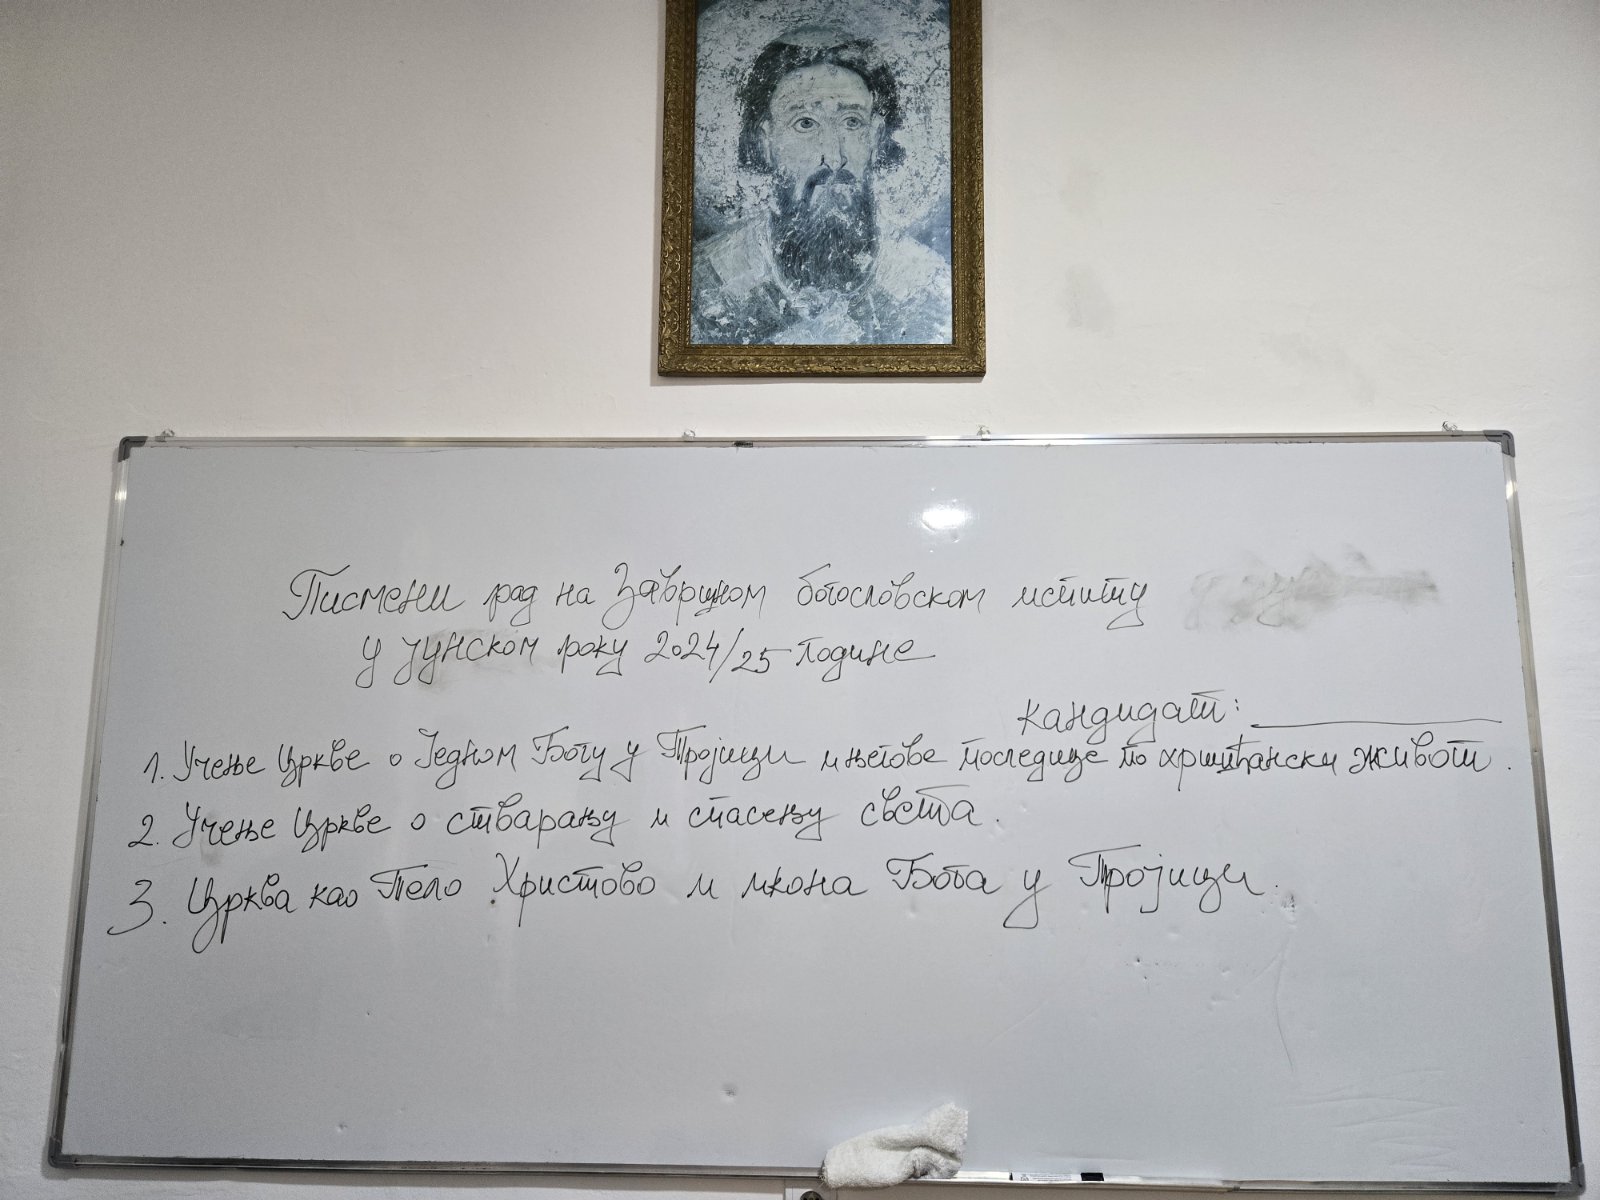 Писмени рад на Завршном богословском испиту
у јунском року 2024/25 године
кандидат:
1. Учење Цркве о Једном Богу у Тројици и његове последице по хришћански живот.
2. Учење Цркве о стварању и спасењу света.
3. Црква као Тело Христово и икона Бога у Тројици.